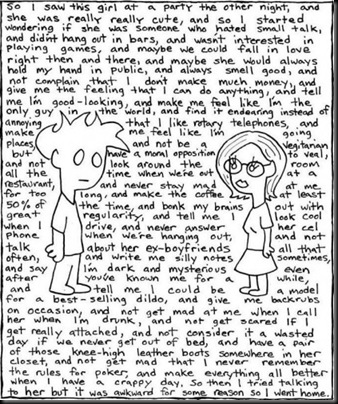 So I saw this girl at a party the other night, and
she was really really cute, and so I started
wondering if she was someone who hated small talk,
and didn't hang out in bars, and wasn't interested in
playing games, and maybe we could fall in love
right then and there, and maybe she would always
hold my hand in public, and always smell good, and
not complain that I don't make much money, and
give me the feeling that I can do anything, and tell
me I'm good-looking, and make me feel like I'm the
only guy in the world, and find it endearing instead of
annoying that I like rotary telephones, and
make me feel like I'm going
places, and not be a vegetarian
but have a moral opposition to veal,
and not look around the room
all the time when we're out at a
restaurant, and never stay mad at me
for too long, and make the coffee at least
50% of the time, and bonk my brains out with
great regularity, and tell me I look cool
when I drive, and never answer her cel
phone when we're hanging out, and not
talk about her ex-boyfriends all that
often, and write me silly notes sometimes,
and say I'm dark and mysterious even
after you've known me for a while,
and tell me I could be a model
for a best-selling dildo, and give me backrubs
on occasion, and not get mad at me when I call
her when I'm drunk, and not get scared if I
get really attached, and not consider it a wasted
day if we never get out of bed, and have a pair
of those knee-high leather boots somewhere in her
closet, and not get mad that I never remember
the rules for poker, and make everything all better
when I have a crappy day. So then I tried talking
to her but it was awkward for some reason so I went home.